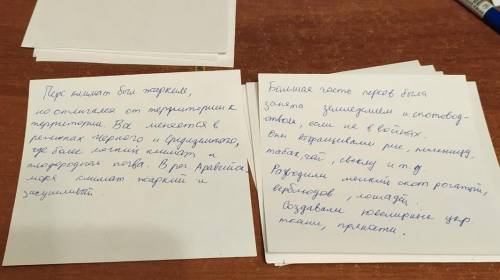 Перс климат был жарким,
но отличался от территории к
территории. Все меняется в
регионах черного и средиземного,
где более легкий климат и
плодородная почва. В рай. Аравийск
моря климат жаркий и
засушливый.
Большая часть персов была
занята земледелием и скотовод-
ством, если не в войнах.
Они выращивали рис, пшеницу,
табак, чай, свеклу и т.д.
Разводили мелкий скот рогатый,
верблюдов, лошадей.
Создавали ювелирные укр
ткани, пряности.